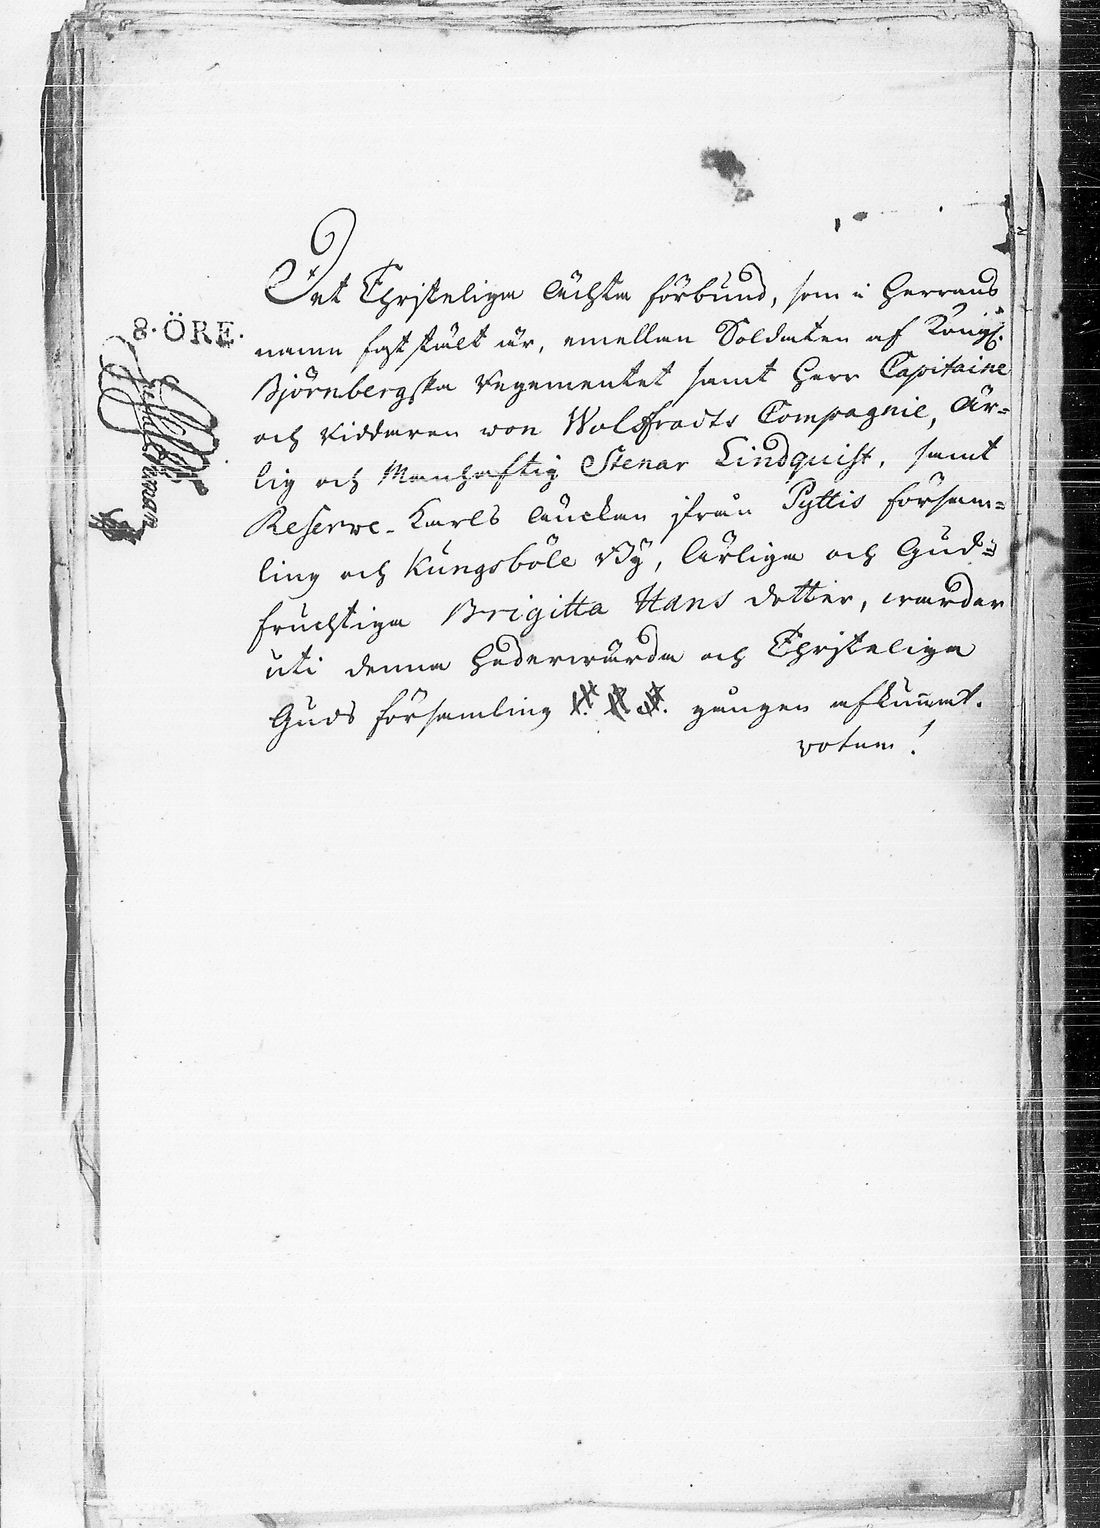 Det Christeliga Ächta förbund, som i Herrans
namn fastställt är, emellan Soldaten af Kongl.
Björnbergska Regementet samt Herr Capitaine
och Riddaren von Wolffradts Compagnie, Är=
lig och Manhaftig Stenar Lindquist, samt
Reserve-Karls Änckan ifrån Pyttis försam=
ling och Kungsböle By, Ärliga och Gud=
fruchtiga Brigitta Hans dotter, warder
uti denna Hedervärda och Christeliga
Guds församling gången afkunnat.
votum!
8. ÖRE.